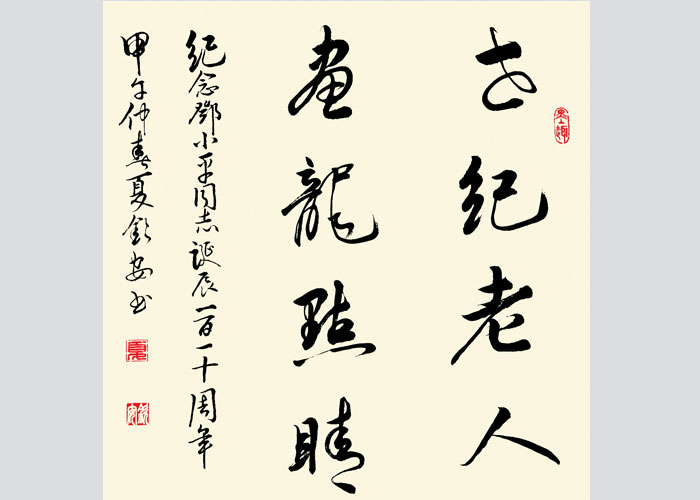 世纪老人
畫龍點睛
纪念鄧小平同志誕辰一百一十周年
甲午仲春夏欽安书